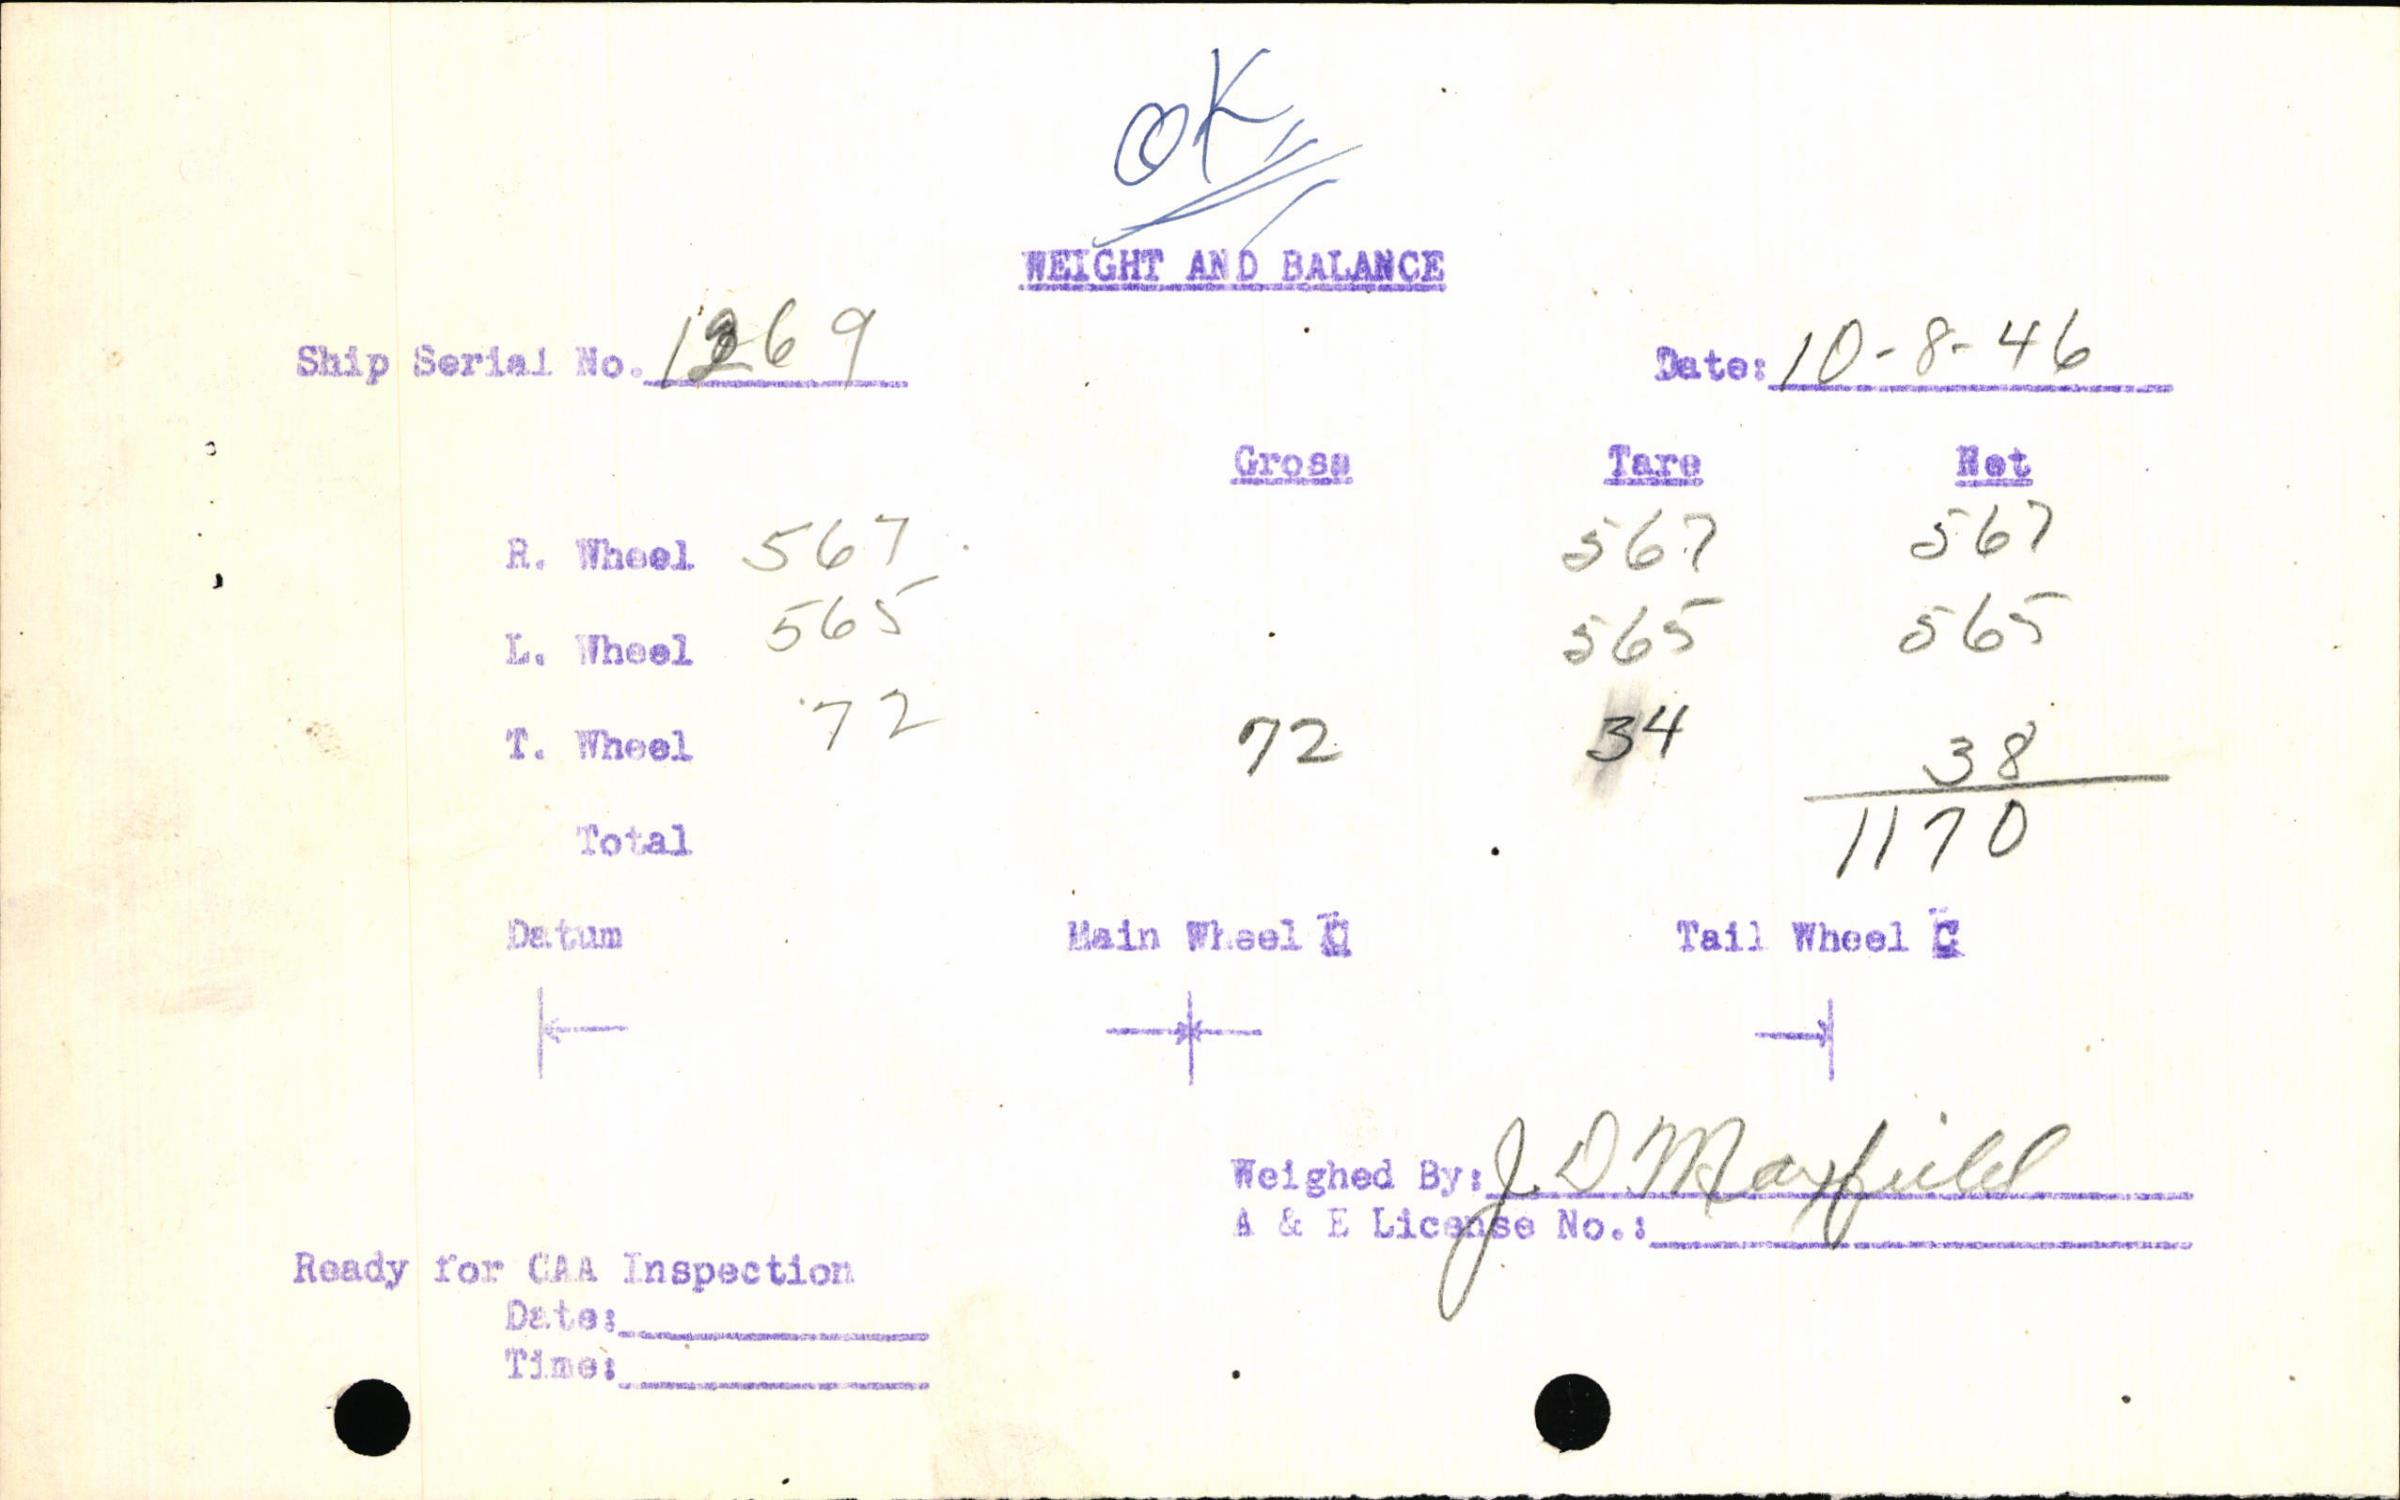 OK
WEIGHT AND BALANCE
Ship Serial No. 1269 Date: 10-8-46
Gross Tare Net
R. Wheel 567 567 567
L. Wheel 565 565 565
T. Wheel 72 72 34 38
Total 1170
Datum Main Wheel C Tail Wheel C
Weighed By: J. D. Maxfield
A & E License No.:
Ready for CAA Inspection
Date:
Time: